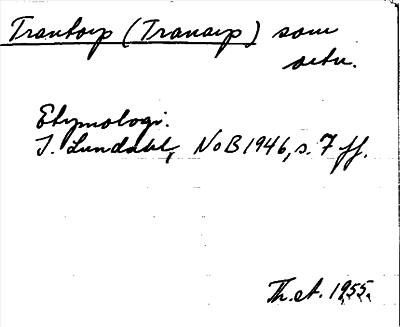 Trantorp (Tranarp) som
ortn.
Etymologi.
I. Lundahl, NoB 1946, s. 7 ff.
Th. et. 1955.